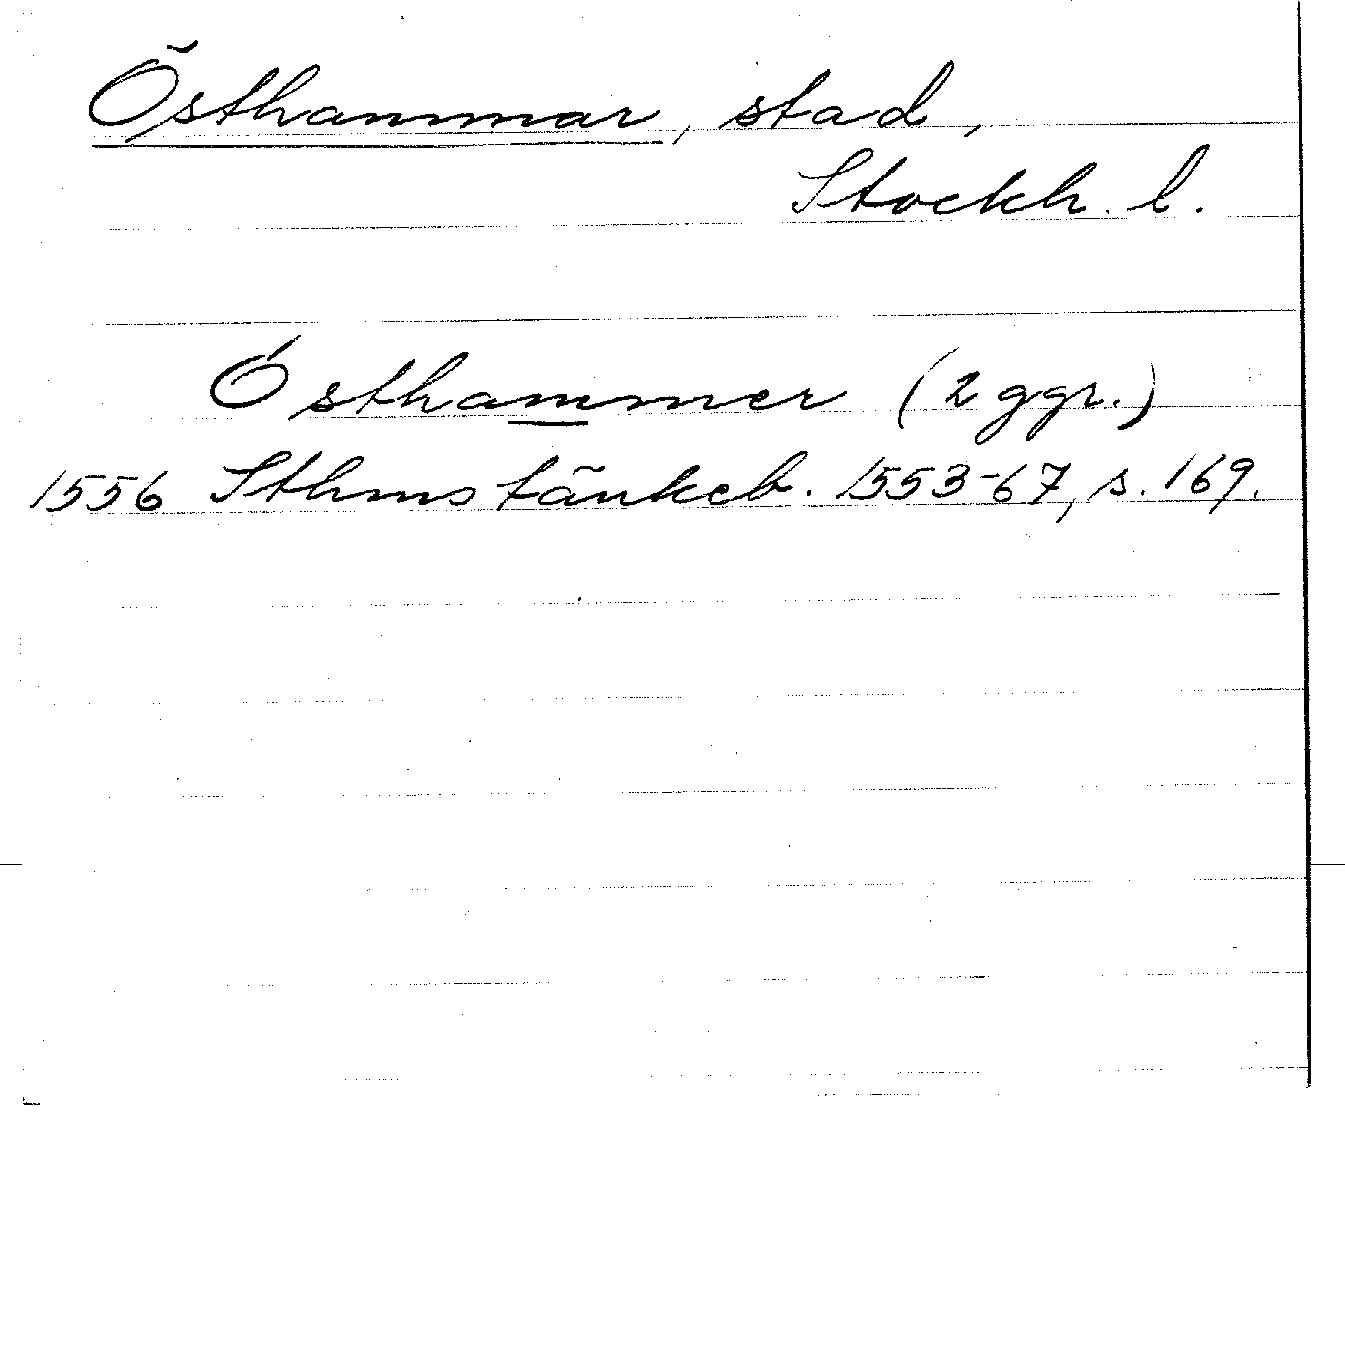 Östhammar, stad,
Stockh. l.
Ósthammer (2 ggr.)
1556 Sthms tänkeb. 1553-67, s. 169.